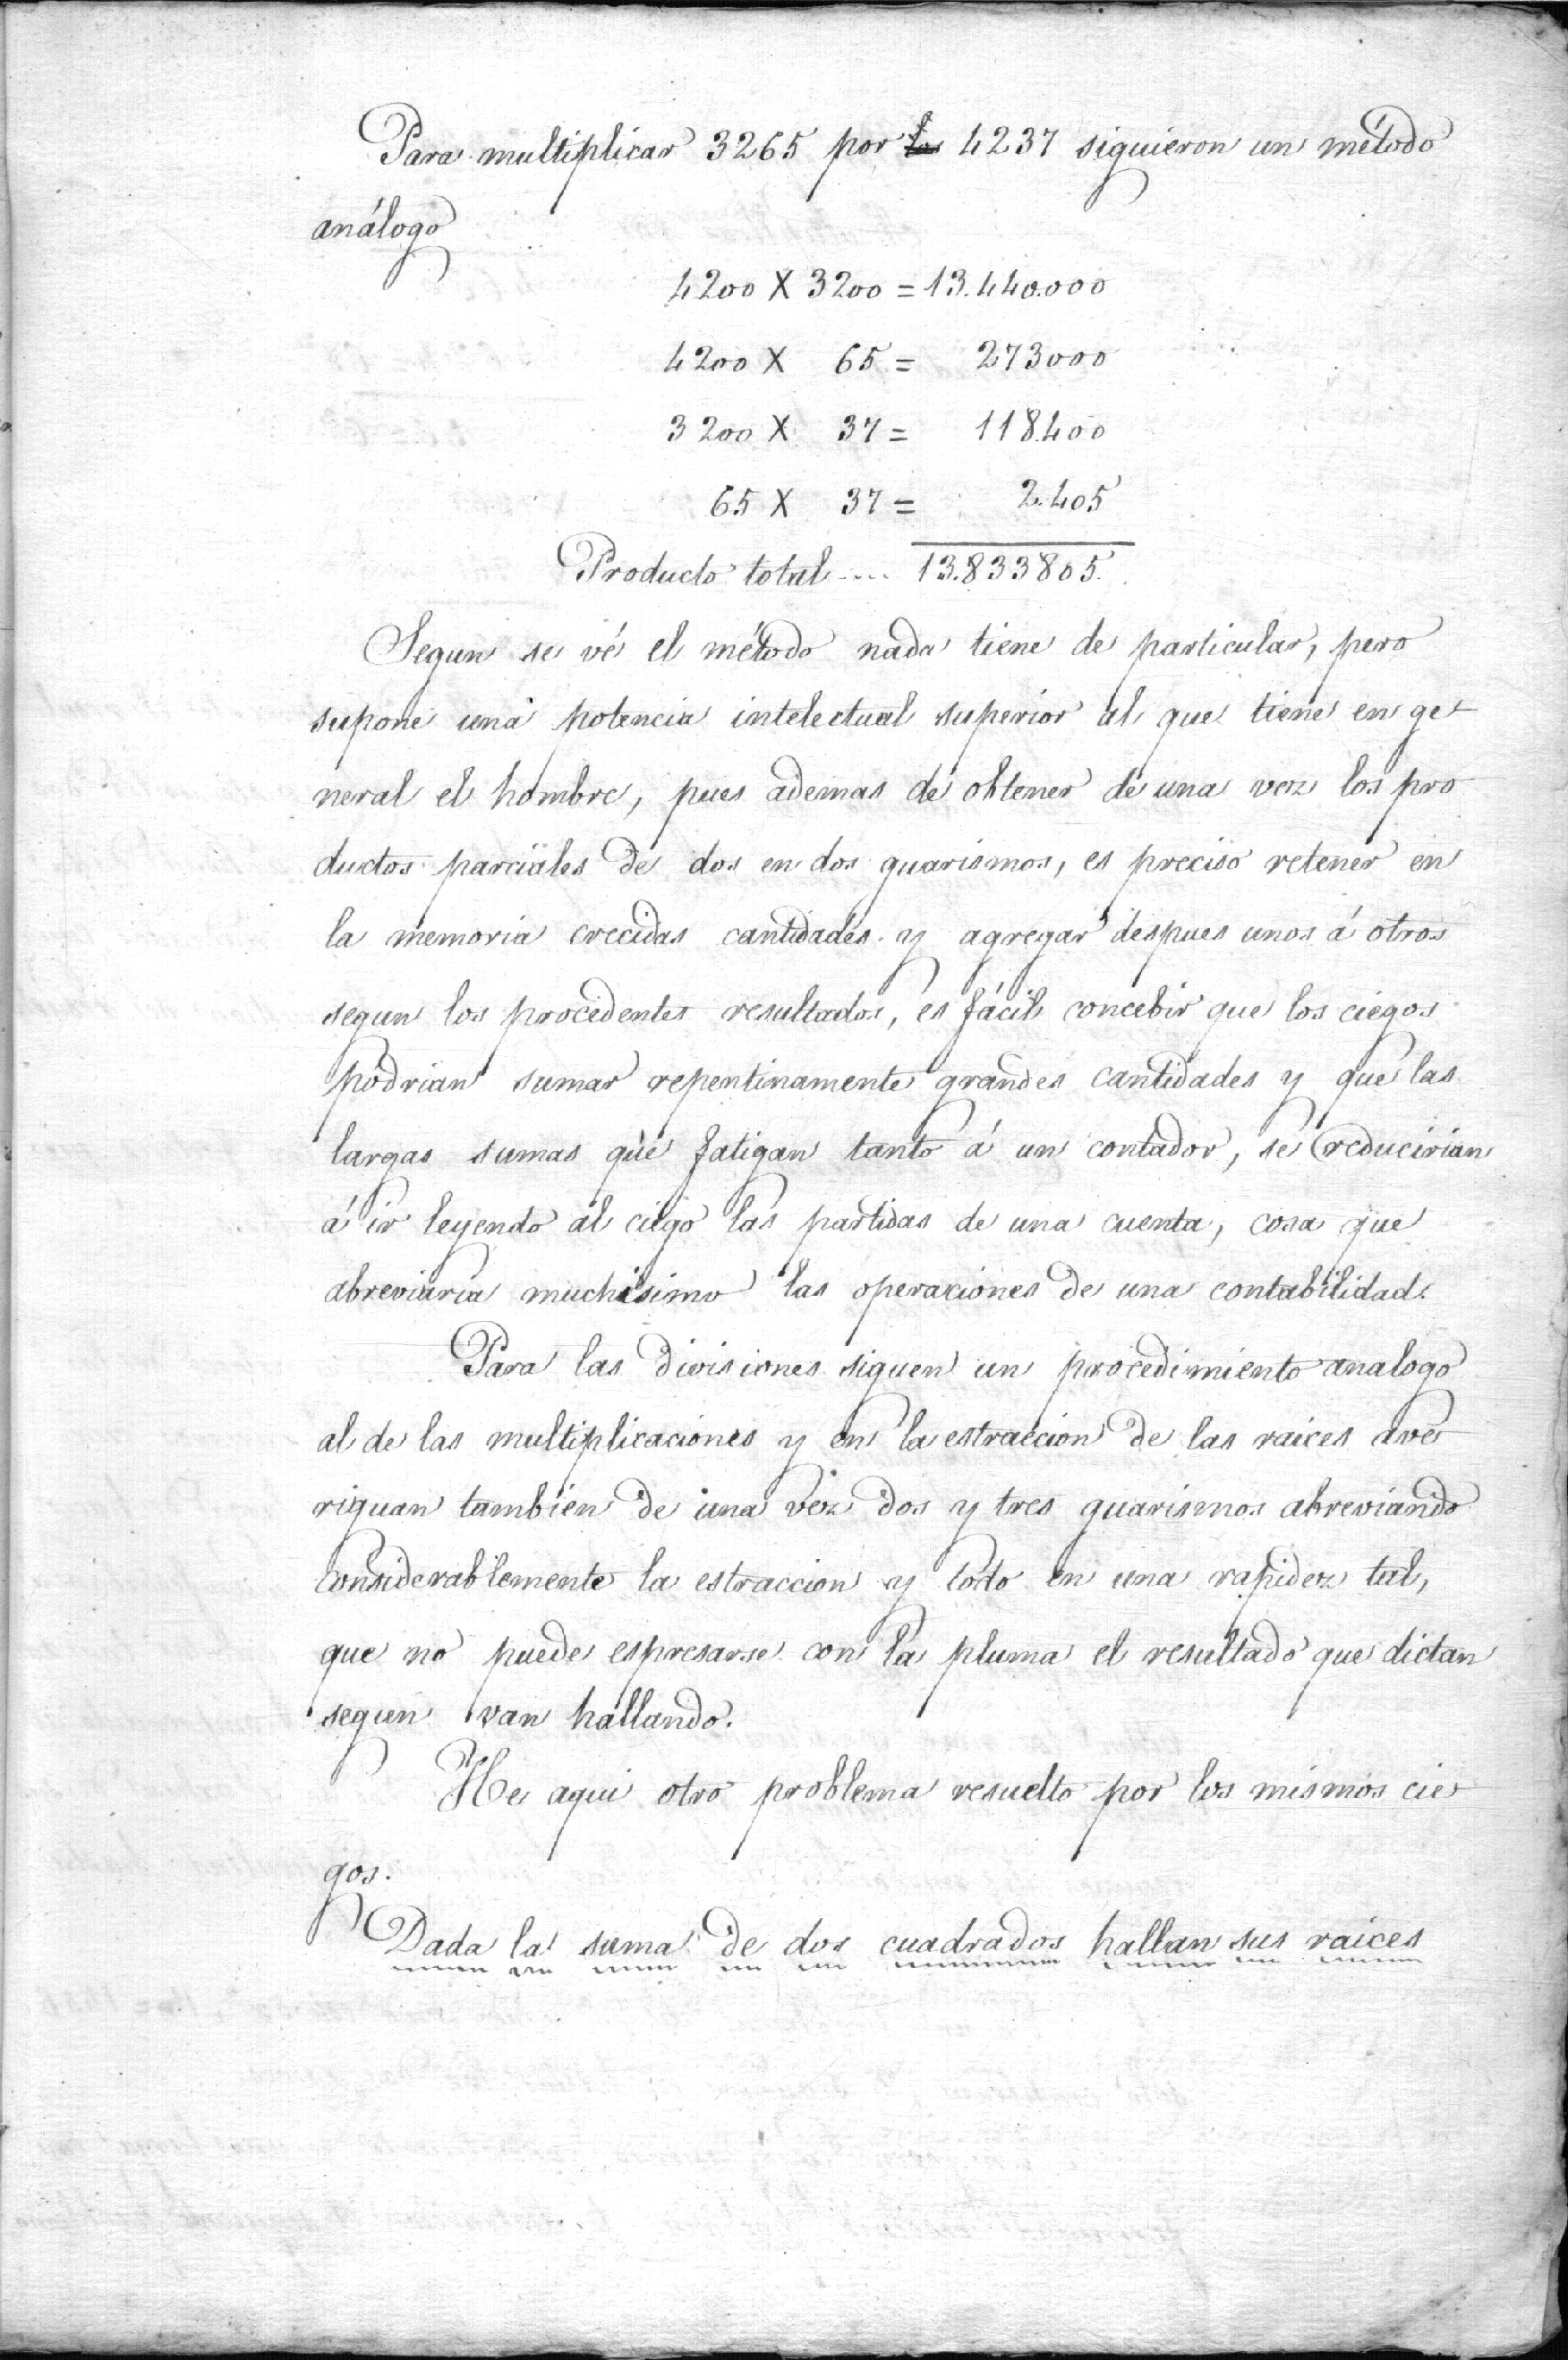 Para multiplicar 3265 por 4237 siguieron un método
análogo
4200 X 3200 = 13.440.000
4200 X 65 = 273000
3200 X 37 = 118.400
65 X 37 = 2.405
Producto total .... 13.833805.
Segun se vé el método nada tiene de particular, pero
supone una potencia intelectual superior al que tiene en ge-
neral el hombre, pues ademas de obtener de una vez los pro
ductos parciales de dos en dos guarismos, es preciso retener en
la memoria crecidas cantidades y agregar despues unos á otros
segun los procedentes resultados, es fácil concebir que los ciegos
podrian sumar repentinamente grandes cantidades y que las
largas sumas que fatigan tanto á un contador, se reducirian
á ir leyendo al ciego las partidas de una cuenta, cosa que
abreviaria muchisimo las operaciones de una contabilidad.
Para las divisiones siguen un procedimiento analogo
al de las multiplicaciones y en la estraccion de las raices ave
riguan tambien de una vez dos y tres guarismos abreviando
considerablemente la estraccion y todo en una rapidez tal,
que no puede espresarse con la pluma el resultado que dictan
segun van hallando.
He aqui otro problema resuelto por los mismos cie-
gos.
Dada la suma de dos cuadrados hallan sus raices